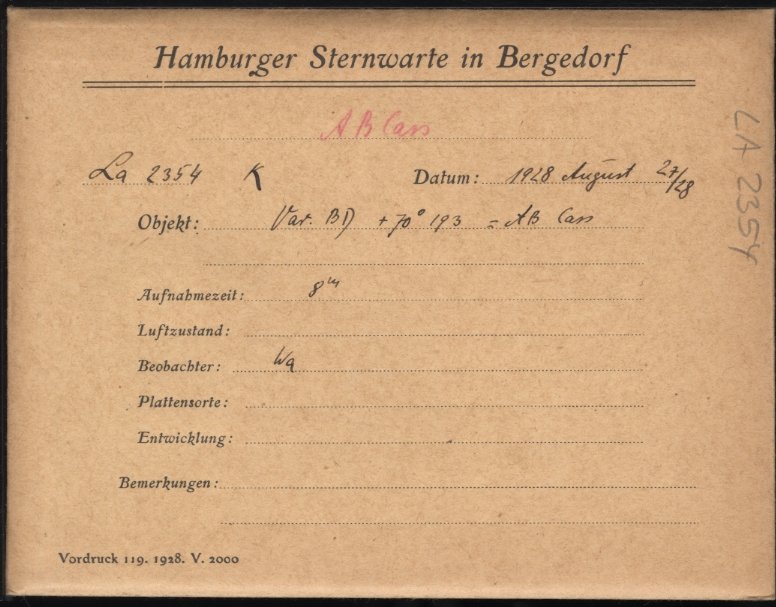 Hamburger Sternwarte in Bergedorf
AB Cass
La 2354 K Datum: 1928 August 27/28
Objekt: Var. BD +70° 193 = AB Cass
Aufnahmezeit: 8m
Luftzustand:
Beobachter: Wa
Plattensorte:
Entwicklung:
Bemerkungen:
Vordruck 119. 1928. V. 2000
LA 2354